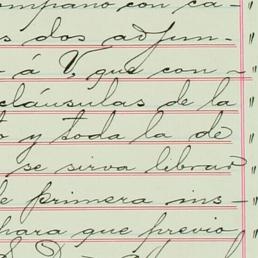 ompaño con ca-
s dos adjun-
- á V, que con-
cláusulas de la
o y toda la de
se sirva librar
e primera ins-
para que previo